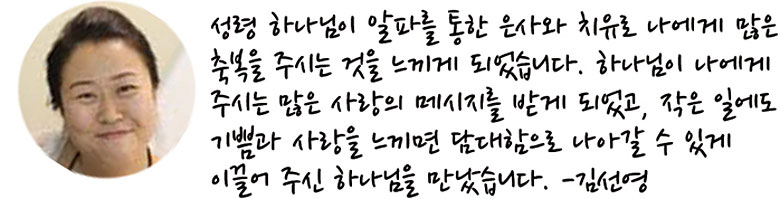 성령 하나님이 알파를 통한 은사와 치유로 나에게 많은
축복을 주시는 것을 느끼게 되었습니다. 하나님이 나에게
주시는 많은 사랑의 메시지를 받게 되었고, 작은 일에도
기쁨과 사랑을 느끼면 담대함으로 나아갈 수 있게
이끌어 주신 하나님을 만났습니다. -김선영